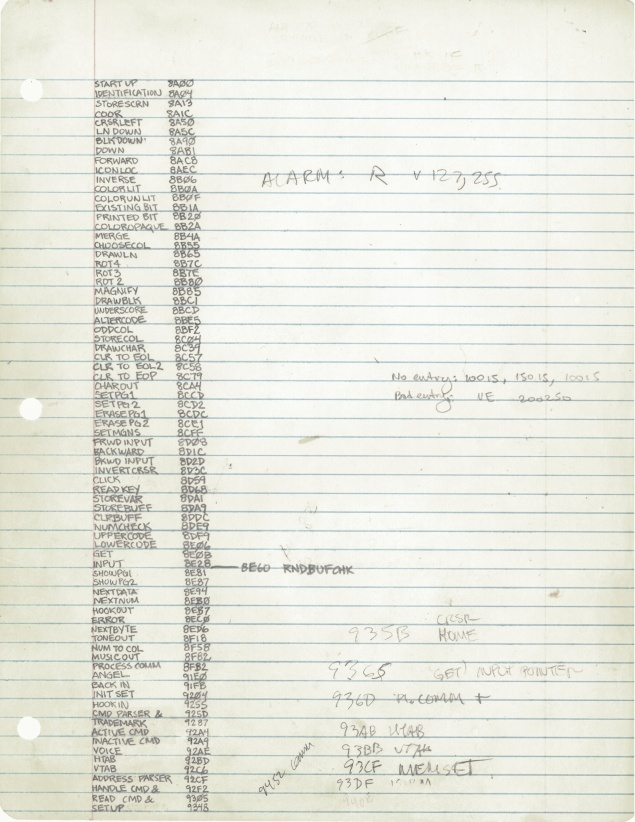 START UP 8A00
IDENTIFICATION 8A04
STORESCRN 8A13
COOR 8A1C
CRSRLEFT 8A50
LN DOWN 8A5C
BLKDOWN 8A90
DOWN 8AB1
FORWARD 8ACB
ICONLOC 8AEC
INVERSE 8B06
ALARM: R V 127,255
COLORLIT 8B0A
COLORUNLIT 8B0F
EXISTING BIT 8B1A
PRINTED BIT 8B20
COLOROPAQUE 8B2A
MERGE 8B4A
CHOOSECOL 8B55
DRAWLN 8B65
ROT4 8B7C
ROT3 8B7E
ROT2 8B80
MAGNIFY 8B85
DRAWBLK 8BC1
UNDERSCORE 8BCD
ALTERCODE 8BE5
ODDCOL 8BF2
STORECOL 8C04
DRAWCHAR 8C39
CLR TO EOL 8C57
CLR TO EOL2 8C58
CLR TO EOP 8C79
No entry: 10015, 15015, 10015
CHAROUT 8CA4
SETPG1 8CCD
Bad entry: VE 200250
SETPG2 8CD2
ERASEPG1 8CDC
ERASEPG2 8CE1
SETMGNS 8CFF
FRWD INPUT 8D08
BACKWARD 8D1C
BKWD INPUT 8D2D
INVERTCRSR 8D3C
CLICK 8D59
READKEY 8D68
STOREVAR 8DA1
STOREBUFF 8DA9
CLRBUFF 8DDC
NUMCHECK 8DE9
UPPERCODE 8DF9
LOWERCODE 8E06
GET 8E0B
INPUT 8E28 — 8E60 RNDBUFCHK
SHOWPG1 8E81
SHOWPG2 8E87
NEXTDATA 8E94
NEXTNUM 8EB0
HOOKOUT 8EB7
ERROR 8EC0
CRSR
NEXTBYTE 8ED6
935B HOME
TONEOUT 8F18
NUM TO COL 8F5B
MUSICOUT 8F82
PROCESS COMM 8FB2
9365 GET INPUT POINTER
ANGEL 91E0
BACK IN 91FB
INIT SET 9204
936D COMM +
HOOKIN 9255
CMD PARSER & 925D
TRADEMARK 9287
ACTIVE CMD 92A4
93AB HTAB
INACTIVE CMD 92A9
VOICE 92AE
93BB VTAB
HTAB 92BD
VTAB 92C6
93CF MEMSET
ADDRESS PARSER 92CF
9452 COMM
93DF
HANDLE CMD & 92F2
READ CMD & 9305
SETUP 934B